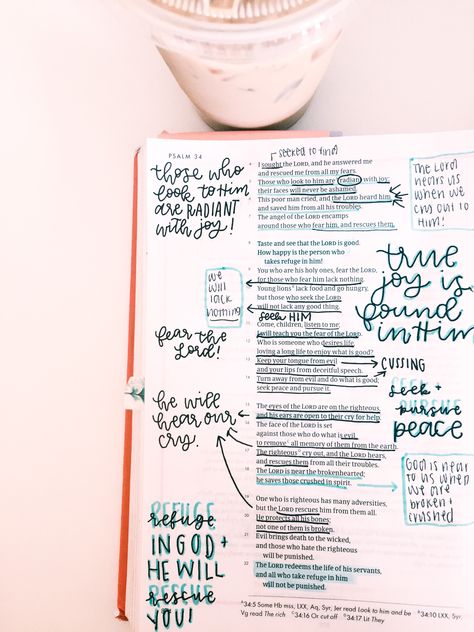 PSALM 34
seeked to find
4 I sought the LORD, and he answered me
and rescued me from all my fears.
5 Those who look to him are radiant with joy;
their faces will never be ashamed.
6 This poor man cried, and the LORD heard him
and saved him from all his troubles.
7 The angel of the LORD encamps
around those who fear him, and rescues them.
8 Taste and see that the LORD is good.
How happy is the person who
takes refuge in him!
9 You who are his holy ones, fear the LORD,
for those who fear him lack nothing.
10 Young lions a lack food and go hungry,
but those who seek the LORD
will not lack any good thing.
seek HIM
11 Come, children, listen to me;
I will teach you the fear of the LORD.
12 Who is someone who desires life,
loving a long life to enjoy what is good?
13 Keep your tongue from evil
and your lips from deceitful speech.
14 Turn away from evil and do what is good;
seek peace and pursue it.
15 The eyes of the LORD are on the righteous,
and his ears are open to their cry for help.
16 The face of the LORD is set
against those who do what is evil,
to remove all memory of them from the earth.
17 The righteous cry out, and the LORD hears,
and rescues them from all their troubles.
18 The LORD is near the brokenhearted;
he saves those crushed in spirit.
19 One who is righteous has many adversities,
but the LORD rescues him from them all.
20 He protects all his bones;
not one of them is broken.
21 Evil brings death to the wicked,
and those who hate the righteous
will be punished.
22 The LORD redeems the life of his servants,
and all who take refuge in him
will not be punished.
those who
look to Him
are RADIANT
with joy!
we
will
lack
nothing
fear the
Lord!
he will
hear our
cry.
REFUGE
refuge
IN GOD +
HE WILL
RESCUE
rescue
YOU!
The Lord
hears us
when we
cry out to
Him!
TRUE
joy is
found
in Him
CUSSING
SEEK +
seek +
PURSUE
pursue
peace
God is near
to us when
we are
broken +
crushed
a 34:5 Some Hb mss, LXX, Aq, Syr, Jer read Look to him and be
b 34:10 LXX, Syr,
Vg read The rich
c 34:16 Or cut off
34:17 Lit They